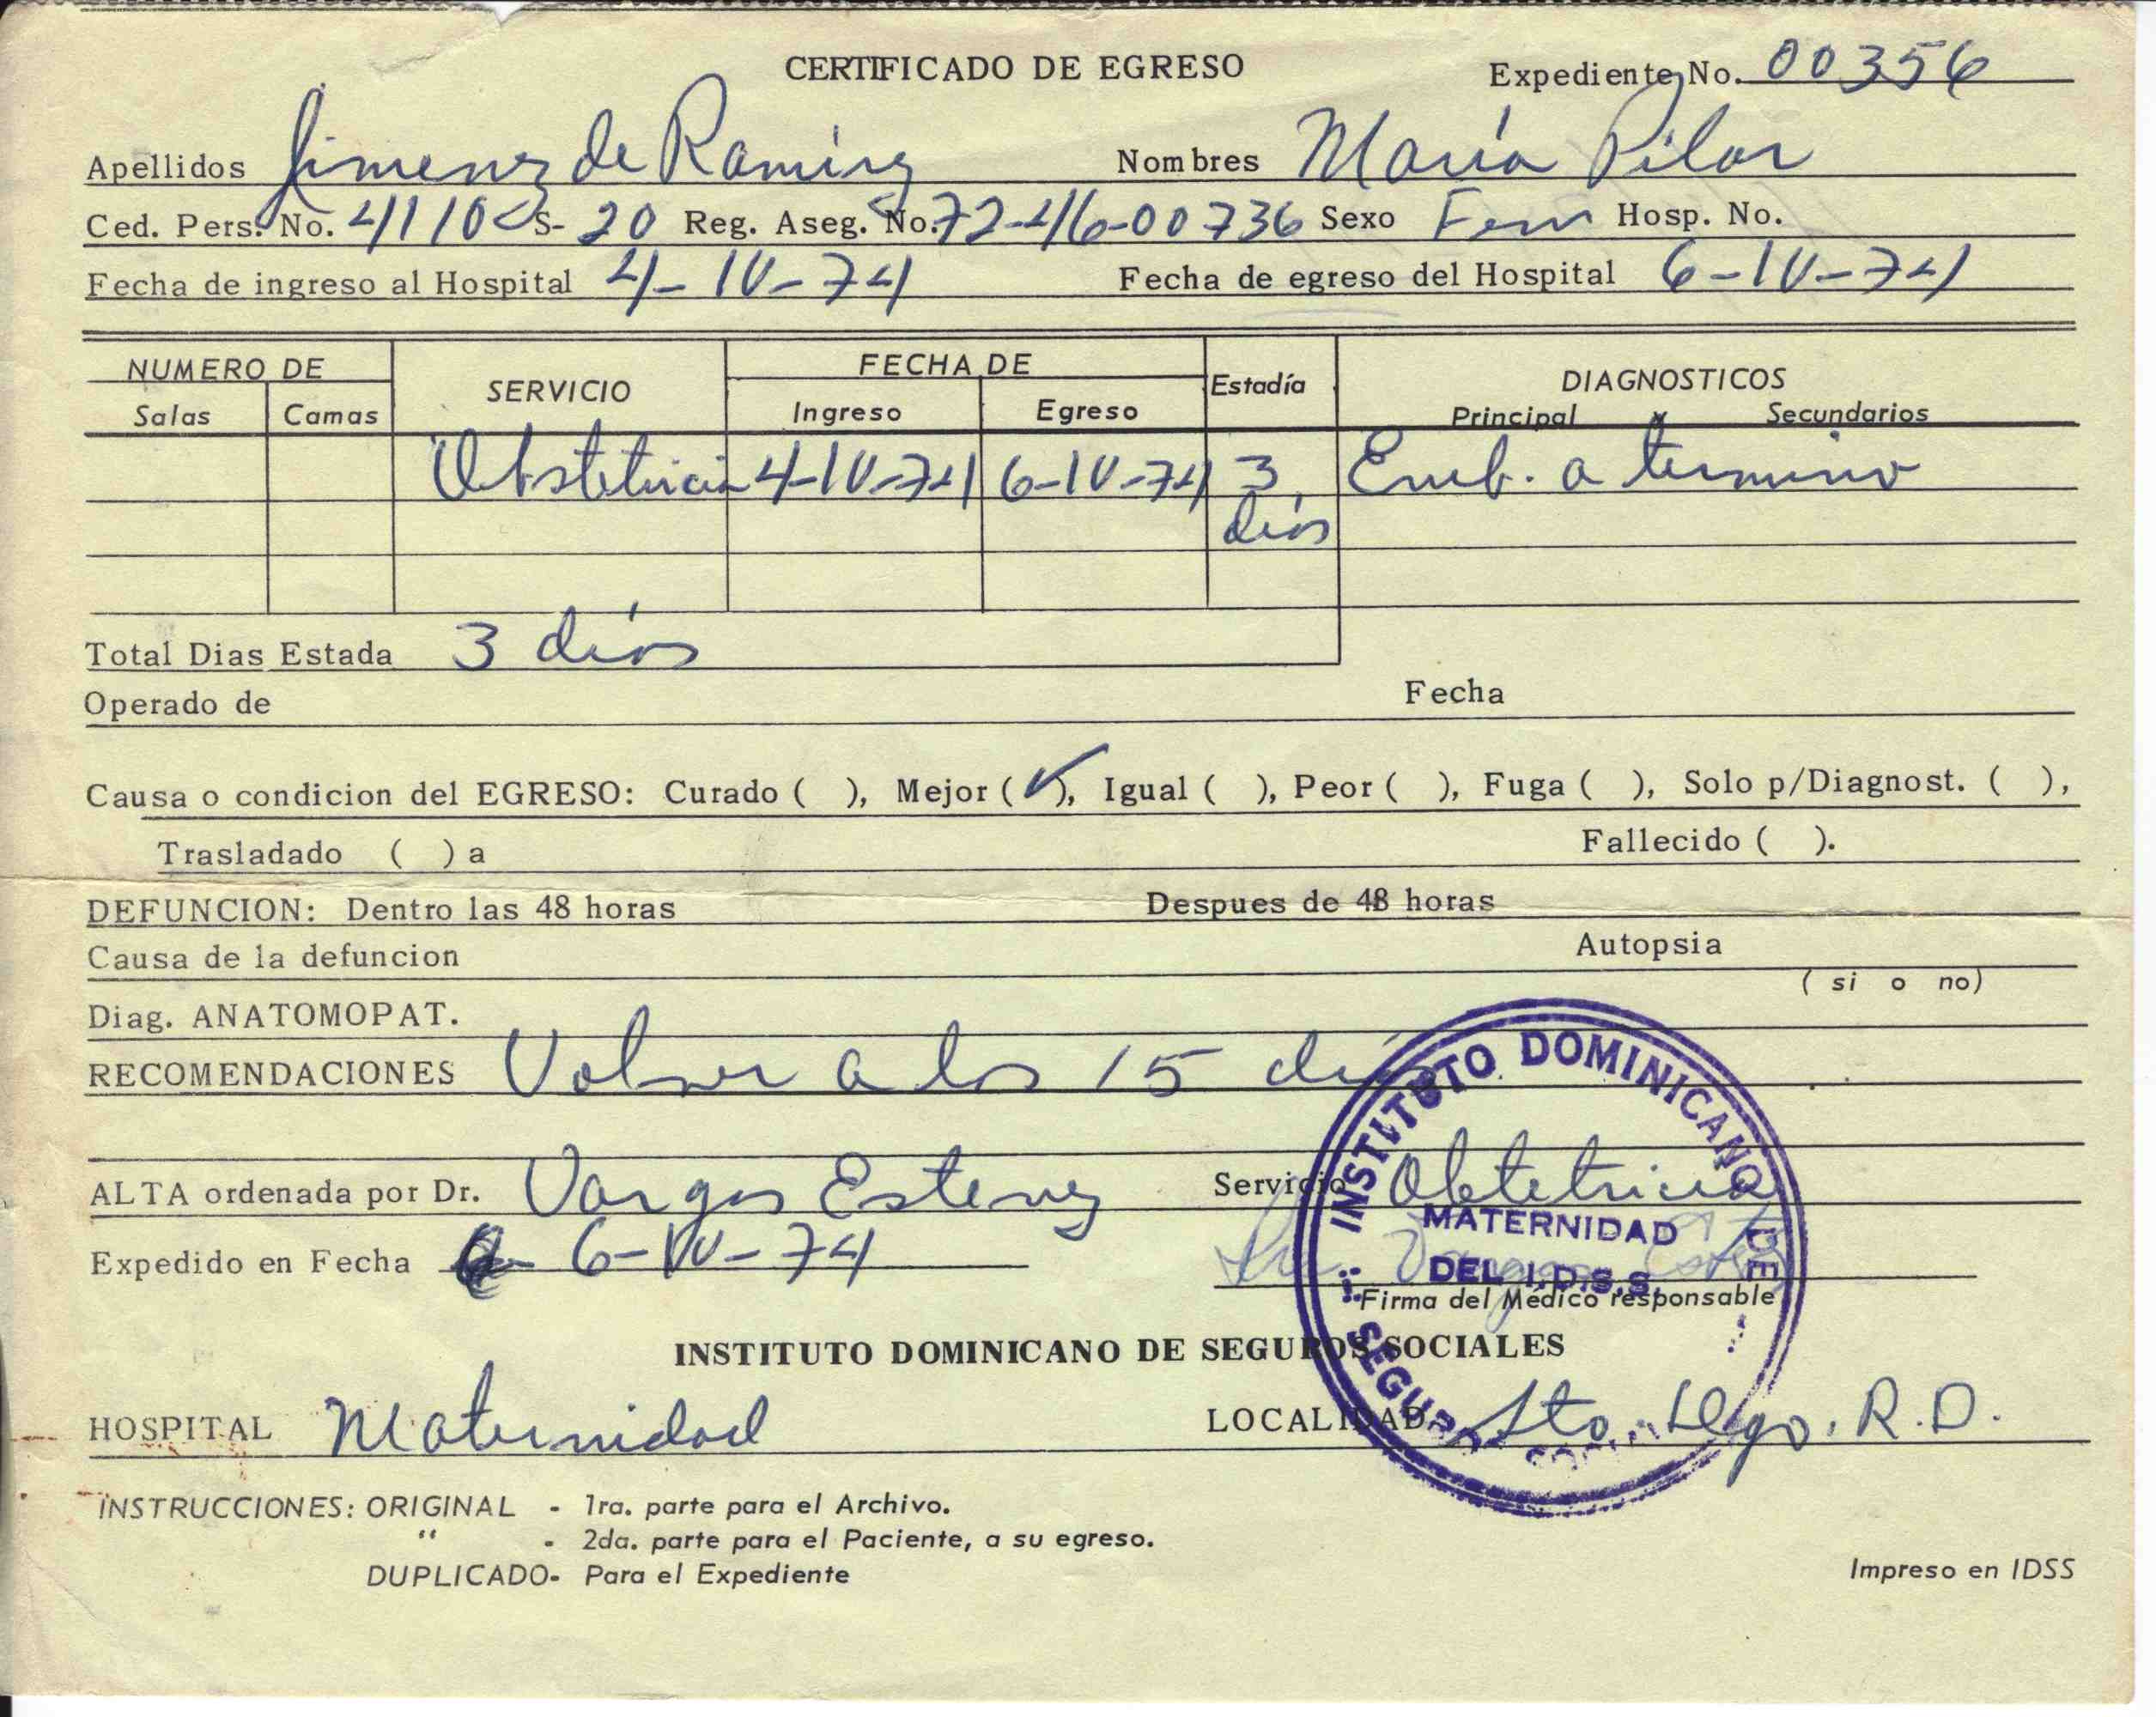 CERTIFICADO DE EGRESO
Expediente No. 00356
Apellidos Jimenez de Ramirez Nombres María Pilar
Ced. Pers. No. S- 20 Reg. Aseg. No. 72-46-00736 Sexo Fem Hosp. No.
Fecha de ingreso al Hospital 4-IV-74 Fecha de egreso del Hospital 6-IV-74
NUMERO DE SERVICIO FECHA DE Estadía DIAGNOSTICOS
Salas Camas Ingreso Egreso Principal y Secundarios
Obstetricia 4-IV-74 6-IV-74 3 días Emb. a termino
Total Dias Estada 3 días
Operado de Fecha
Causa o condicion del EGRESO: Curado ( ), Mejor (✓), Igual ( ), Peor ( ), Fuga ( ), Solo p/Diagnost. ( ),
Trasladado ( ) a Fallecido ( ).
DEFUNCION: Dentro las 48 horas Despues de 48 horas
Causa de la defuncion Autopsia
( si o no)
Diag. ANATOMOPAT.
RECOMENDACIONES Volver a los 15 días
ALTA ordenada por Dr. Vargas Estevez Servicio Obtetricia
Expedido en Fecha 6-IV-74
Firma del Médico responsable
INSTITUTO DOMINICANO DE SEGUROS SOCIALES
MATERNIDAD
DEL I.D.S.S.
INSTITUTO DOMINICANO DE SEGUROS SOCIALES
HOSPITAL Maternidad LOCALIDAD Sto. Dgo. R.D.
INSTRUCCIONES: ORIGINAL - 1ra. parte para el Archivo.
" - 2da. parte para el Paciente, a su egreso.
DUPLICADO- Para el Expediente
Impreso en IDSS